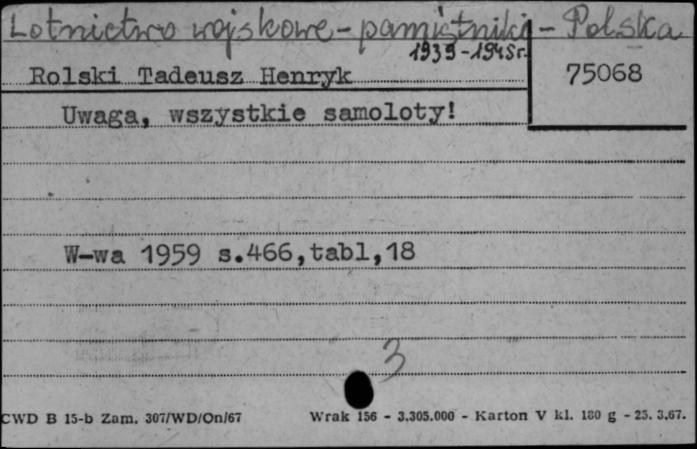 Lotnictwo wojskowe - pamiętniki - Polska
1939-1945r.
Rolski Tadeusz Henryk
75068
Uwaga, wszystkie samoloty!
W-wa 1959 s.466,tabl,18
3
CWD B 15-b Zam. 307/WD/On/67 Wrak 156 - 3.305.000 - Karton V kl. 180 g - 25. 3.67.